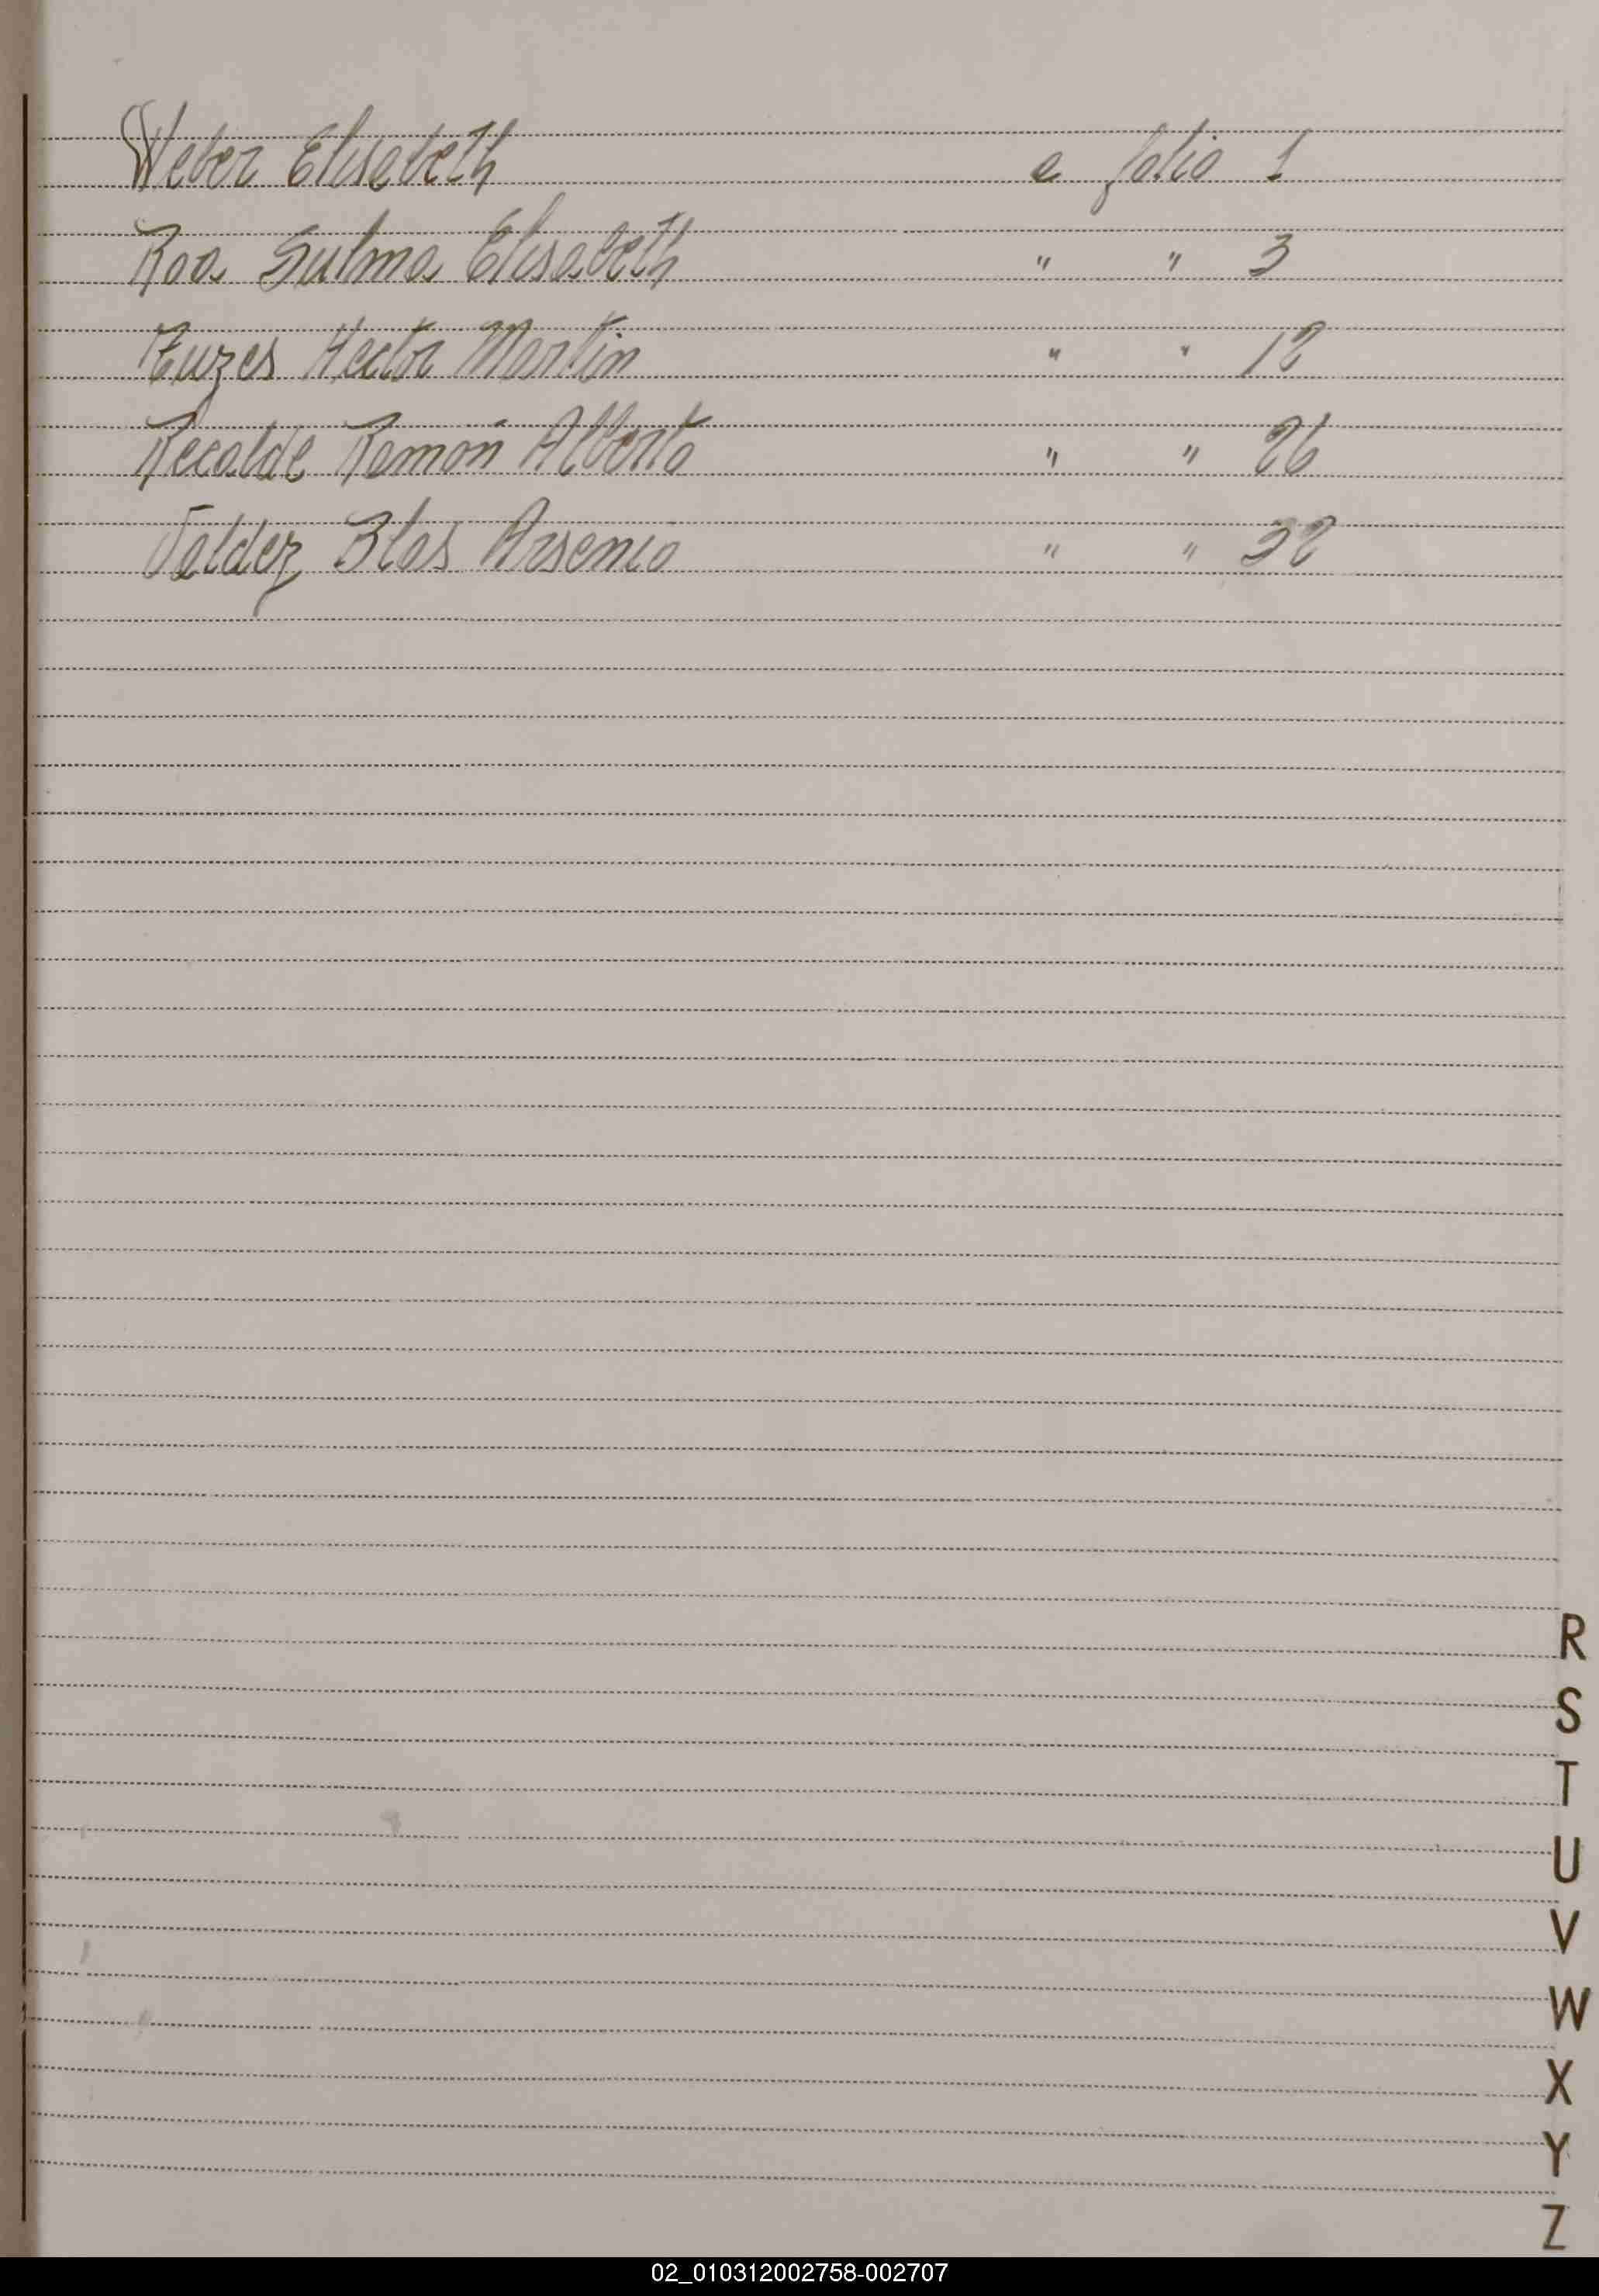 Weber Elisabeth a folio 1
Roa Sulma Elisabeth " " 3
Hector Martin " " 12
Recalde Ramón Alberto " " 26
Valdez Blas Arsenio " " 32
R
S
T
U
V
W
X
Y
Z
02_010312002758-002707